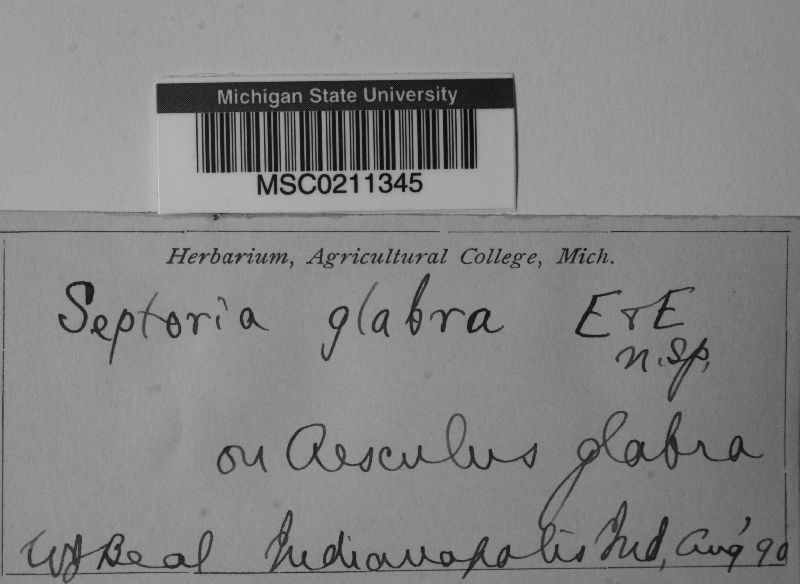 Michigan State University
MSC0211345
Herbarium, Agricultural College, Mich.
Septoria glabra E & E
n. sp.
on Aesculus glabra
WJ Beal Indianapolis Ind, Aug' 90